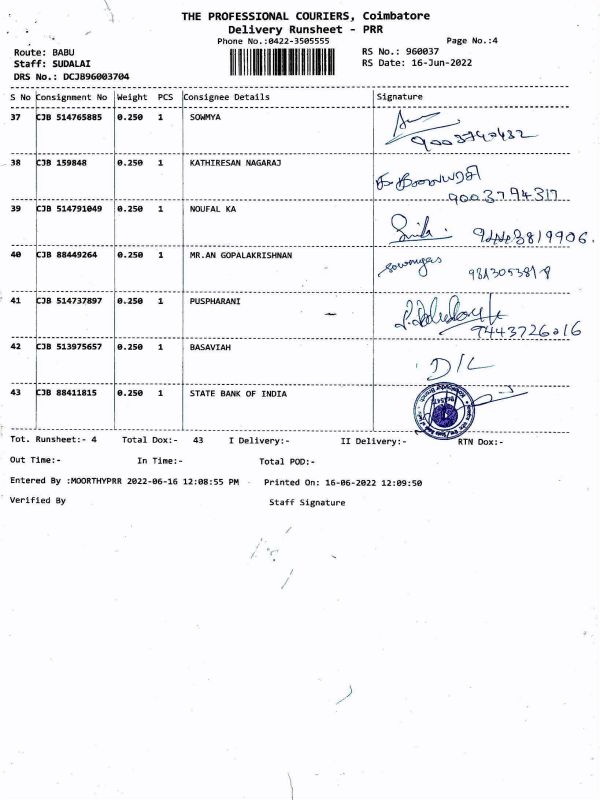 THE PROFESSIONAL COURIERS, Coimbatore
Delivery Runsheet - PRR
Phone No.:0422-3505555
Page No.:4
Route: BABU
RS No.: 960037
Staff: SUDALAI
RS Date: 16-Jun-2022
DRS No.: DCJB96003704
S No Consignment No Weight PCS Consignee Details Signature
37 CJB 514765885 0.250 1 SOWMYA
9003740432
38 CJB 159848 0.250 1 KATHIRESAN NAGARAJ
9003794317
39 CJB 514791049 0.250 1 NOUFAL KA
40 CJB 88449264 0.250 1 MR.AN GOPALAKRISHNAN
41 CJB 514737897 0.250 1 PUSPHARANI
9443726016
42 CJB 513975657 0.250 1 BASAVIAH
D/L
43 CJB 88411815 0.250 1 STATE BANK OF INDIA
Tot. Runsheet:- 4 Total Dox:- 43 I Delivery:- II Delivery:- RTN Dox:-
Out Time:- In Time:- Total POD:-
Entered By :MOORTHYPRR 2022-06-16 12:08:55 PM Printed On: 16-06-2022 12:09:50
Verified By Staff Signature